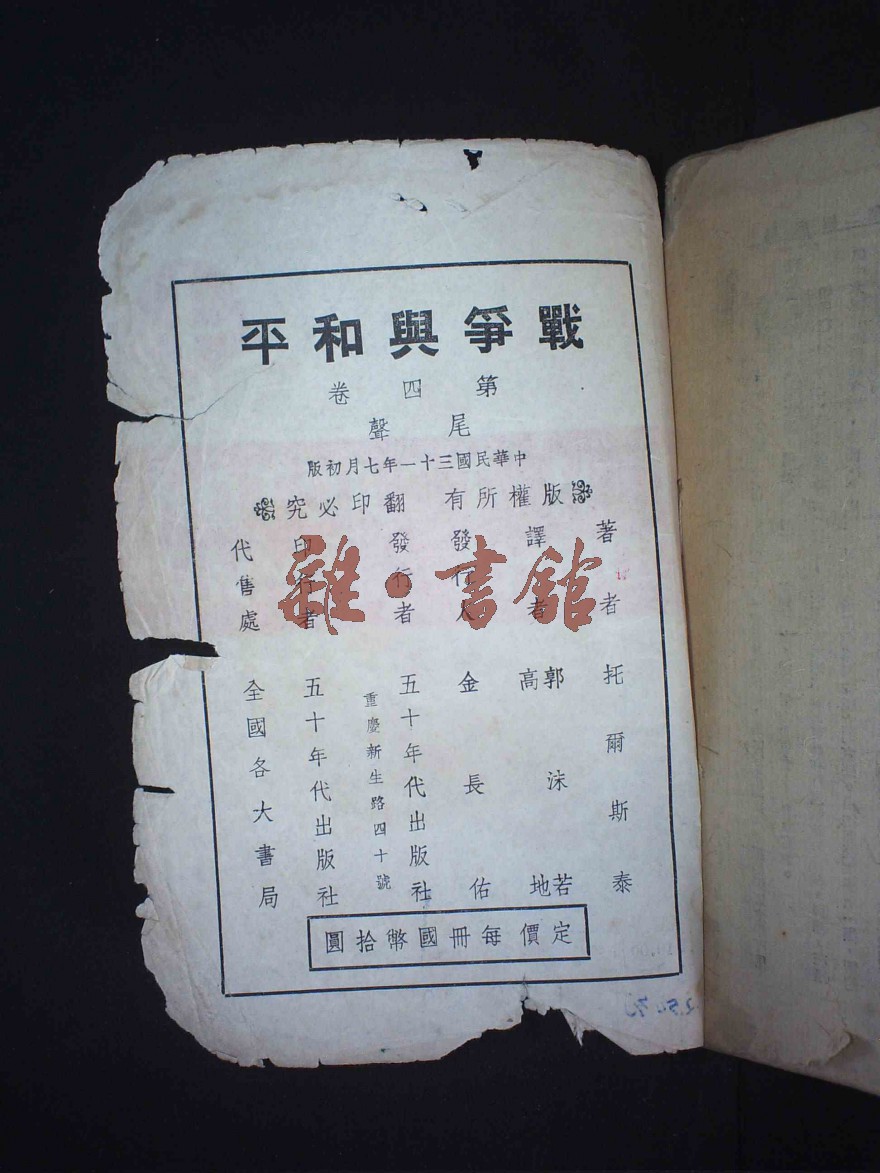 戰爭與和平
第四卷
尾聲
中華民國三十一年七月初版
版權所有 翻印必究
著者 托爾斯泰
譯者 郭沫若 高地
發行人 金長佑
發行者 五十年代出版社
重慶新生路四十號
印行者 五十年代出版社
代售處 全國各大書局
定價每冊國幣拾圓
雜·書館